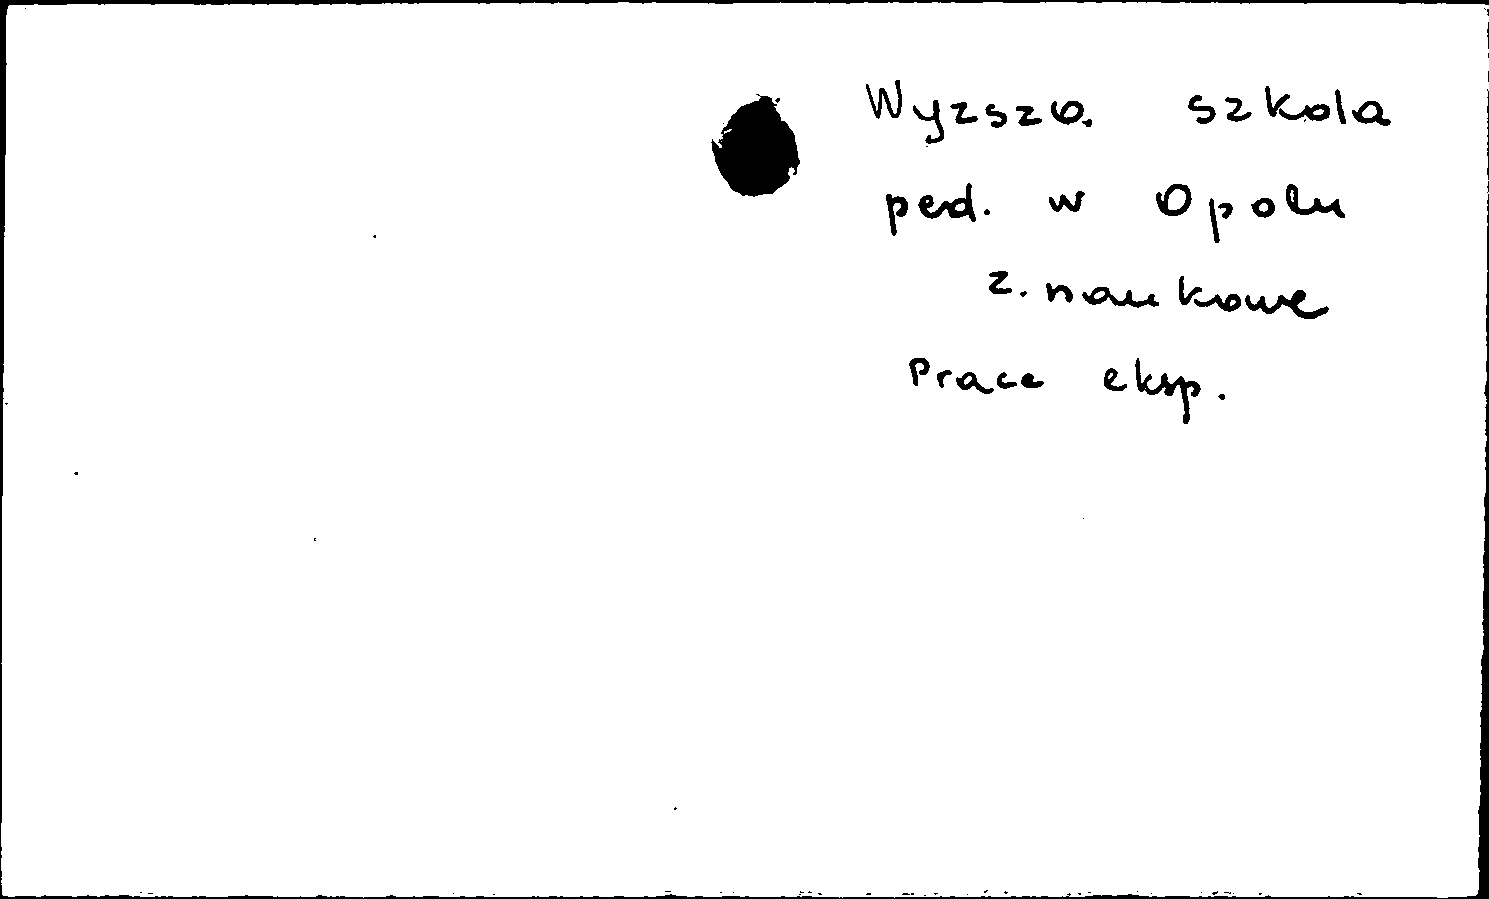 Wyzsza szkola
ped. w Opolu
z. naukowe
Prace eksp.